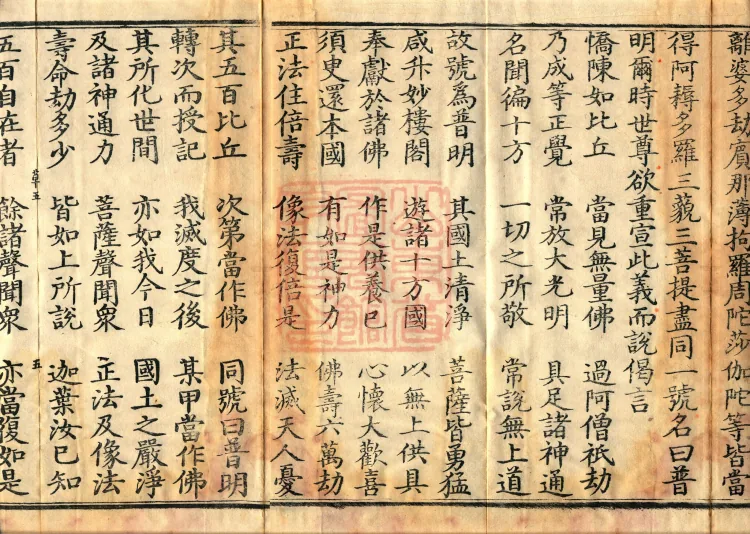 離婆多劫賓那薄拘羅周陀莎伽陀等皆當
得阿耨多羅三藐三菩提盡同一號名曰普
明爾時世尊欲重宣此義而說偈言
憍陳如比丘 當見無量佛 過阿僧祇劫
乃成等正覺 常放大光明 具足諸神通
名聞徧十方 一切之所敬 常說無上道
故號爲普明 其國土清淨 菩薩皆勇猛
咸升妙樓閣 遊諸十方國 以無上供具
奉獻於諸佛 作是供養已 心懷大歡喜
須臾還本國 有如是神力 佛壽六萬劫
正法住倍壽 像法復倍是 法滅天人憂
其五百比丘 次第當作佛 同號曰普明
轉次而授記 我滅度之後 某甲當作佛
其所化世間 亦如我今日 國土之嚴淨
及諸神通力 菩薩聲聞衆 正法及像法
壽命劫多少 皆如上所說 迦葉汝已知
草五 五
五百自在者 餘諸聲聞衆 亦當復如是